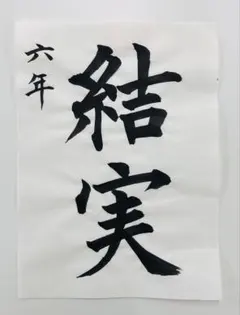 結実
六年